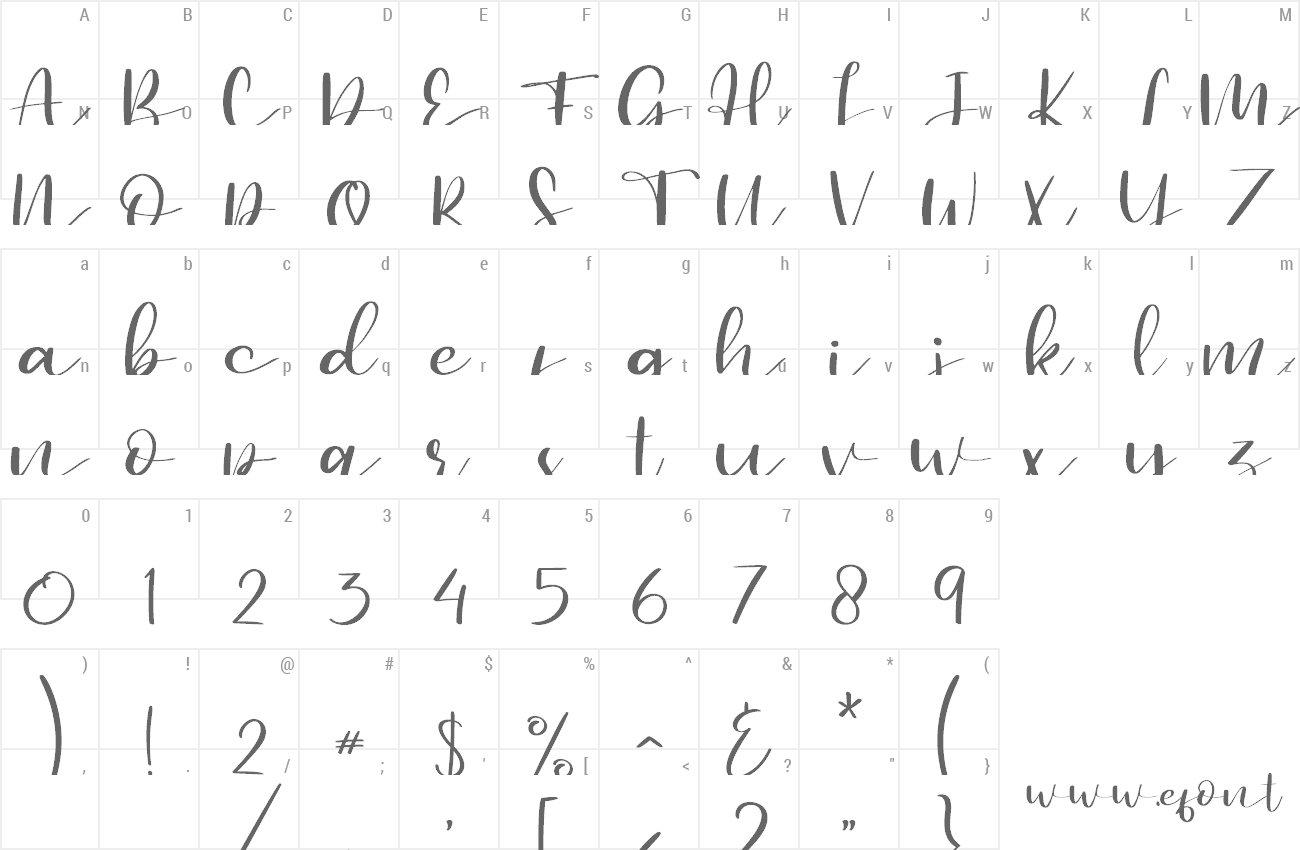 A B C D E F G H I J K L M
A B C D E F G H I J K L M
N O P Q R S T U V W X Y Z
N O P Q R S T U V W X Y Z
a b c d e f g h i j k l m
a b c d e f g h i j k l m
n o p q r s t u v w x y z
n o p q r s t u v w x y z
0 1 2 3 4 5 6 7 8 9
0 1 2 3 4 5 6 7 8 9
) ! @ # $ % ^ & * (
) ! 2 # $ % ^ & * (
, . / ; ' [ < ? " }
/ ' [ < ? " }
www.efont